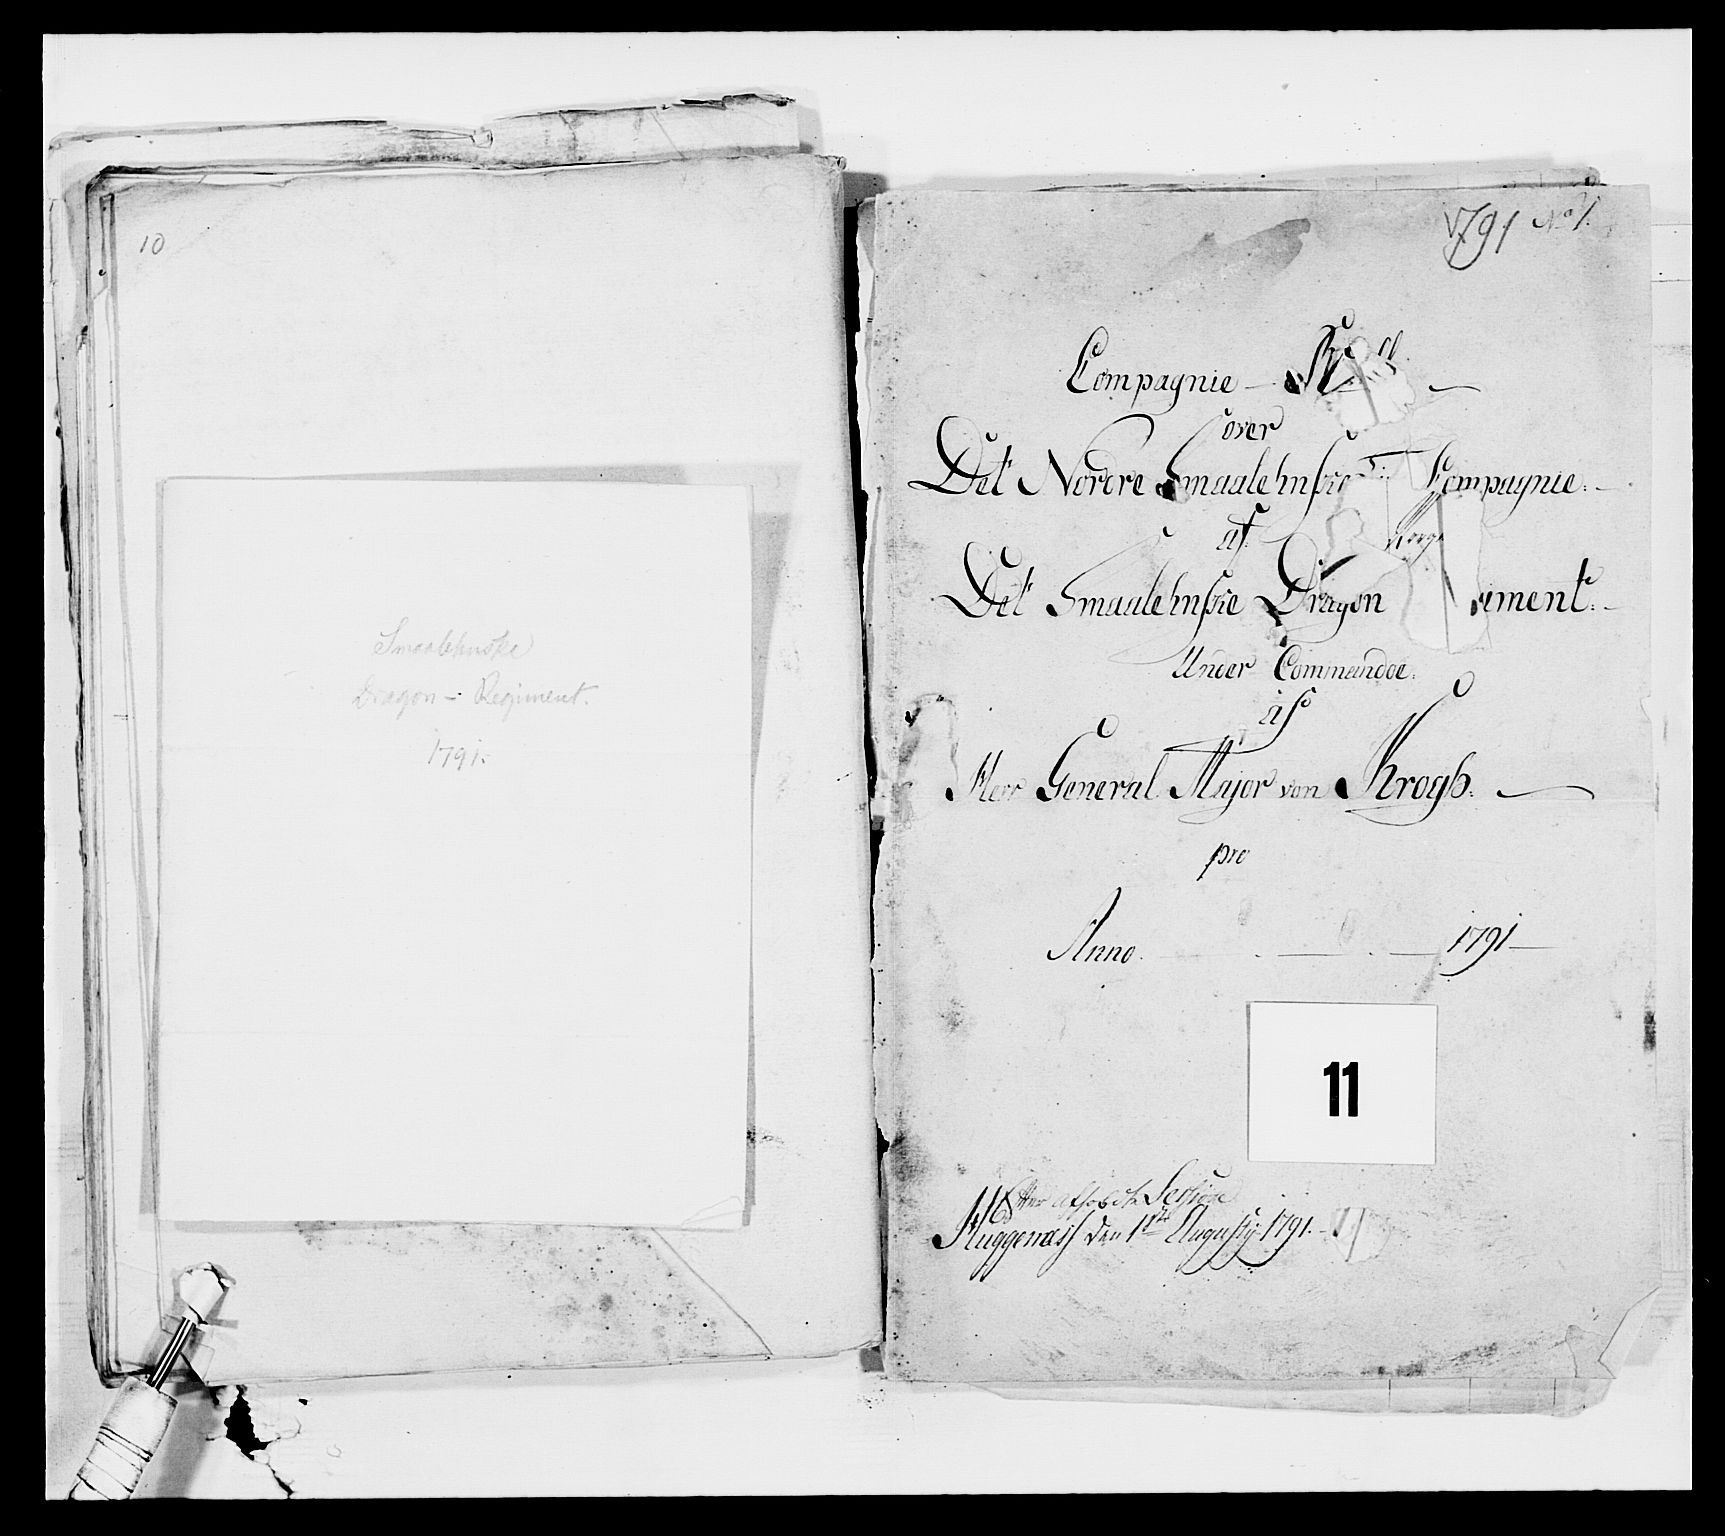 10
Smaalehnske
Dragon - Regiment.
1791.
1791 No 1.
Compagnie
over
Det Nordre Smaalehnske Compagnie.
af
Det Smaalehnske Dragon iment.
Under Commandoe.
af
Herr General Major von Krogh.
pro
Anno. 1791
11
Efter afholdte Sessjon
Huggenæss den 1te Augusty 1791.